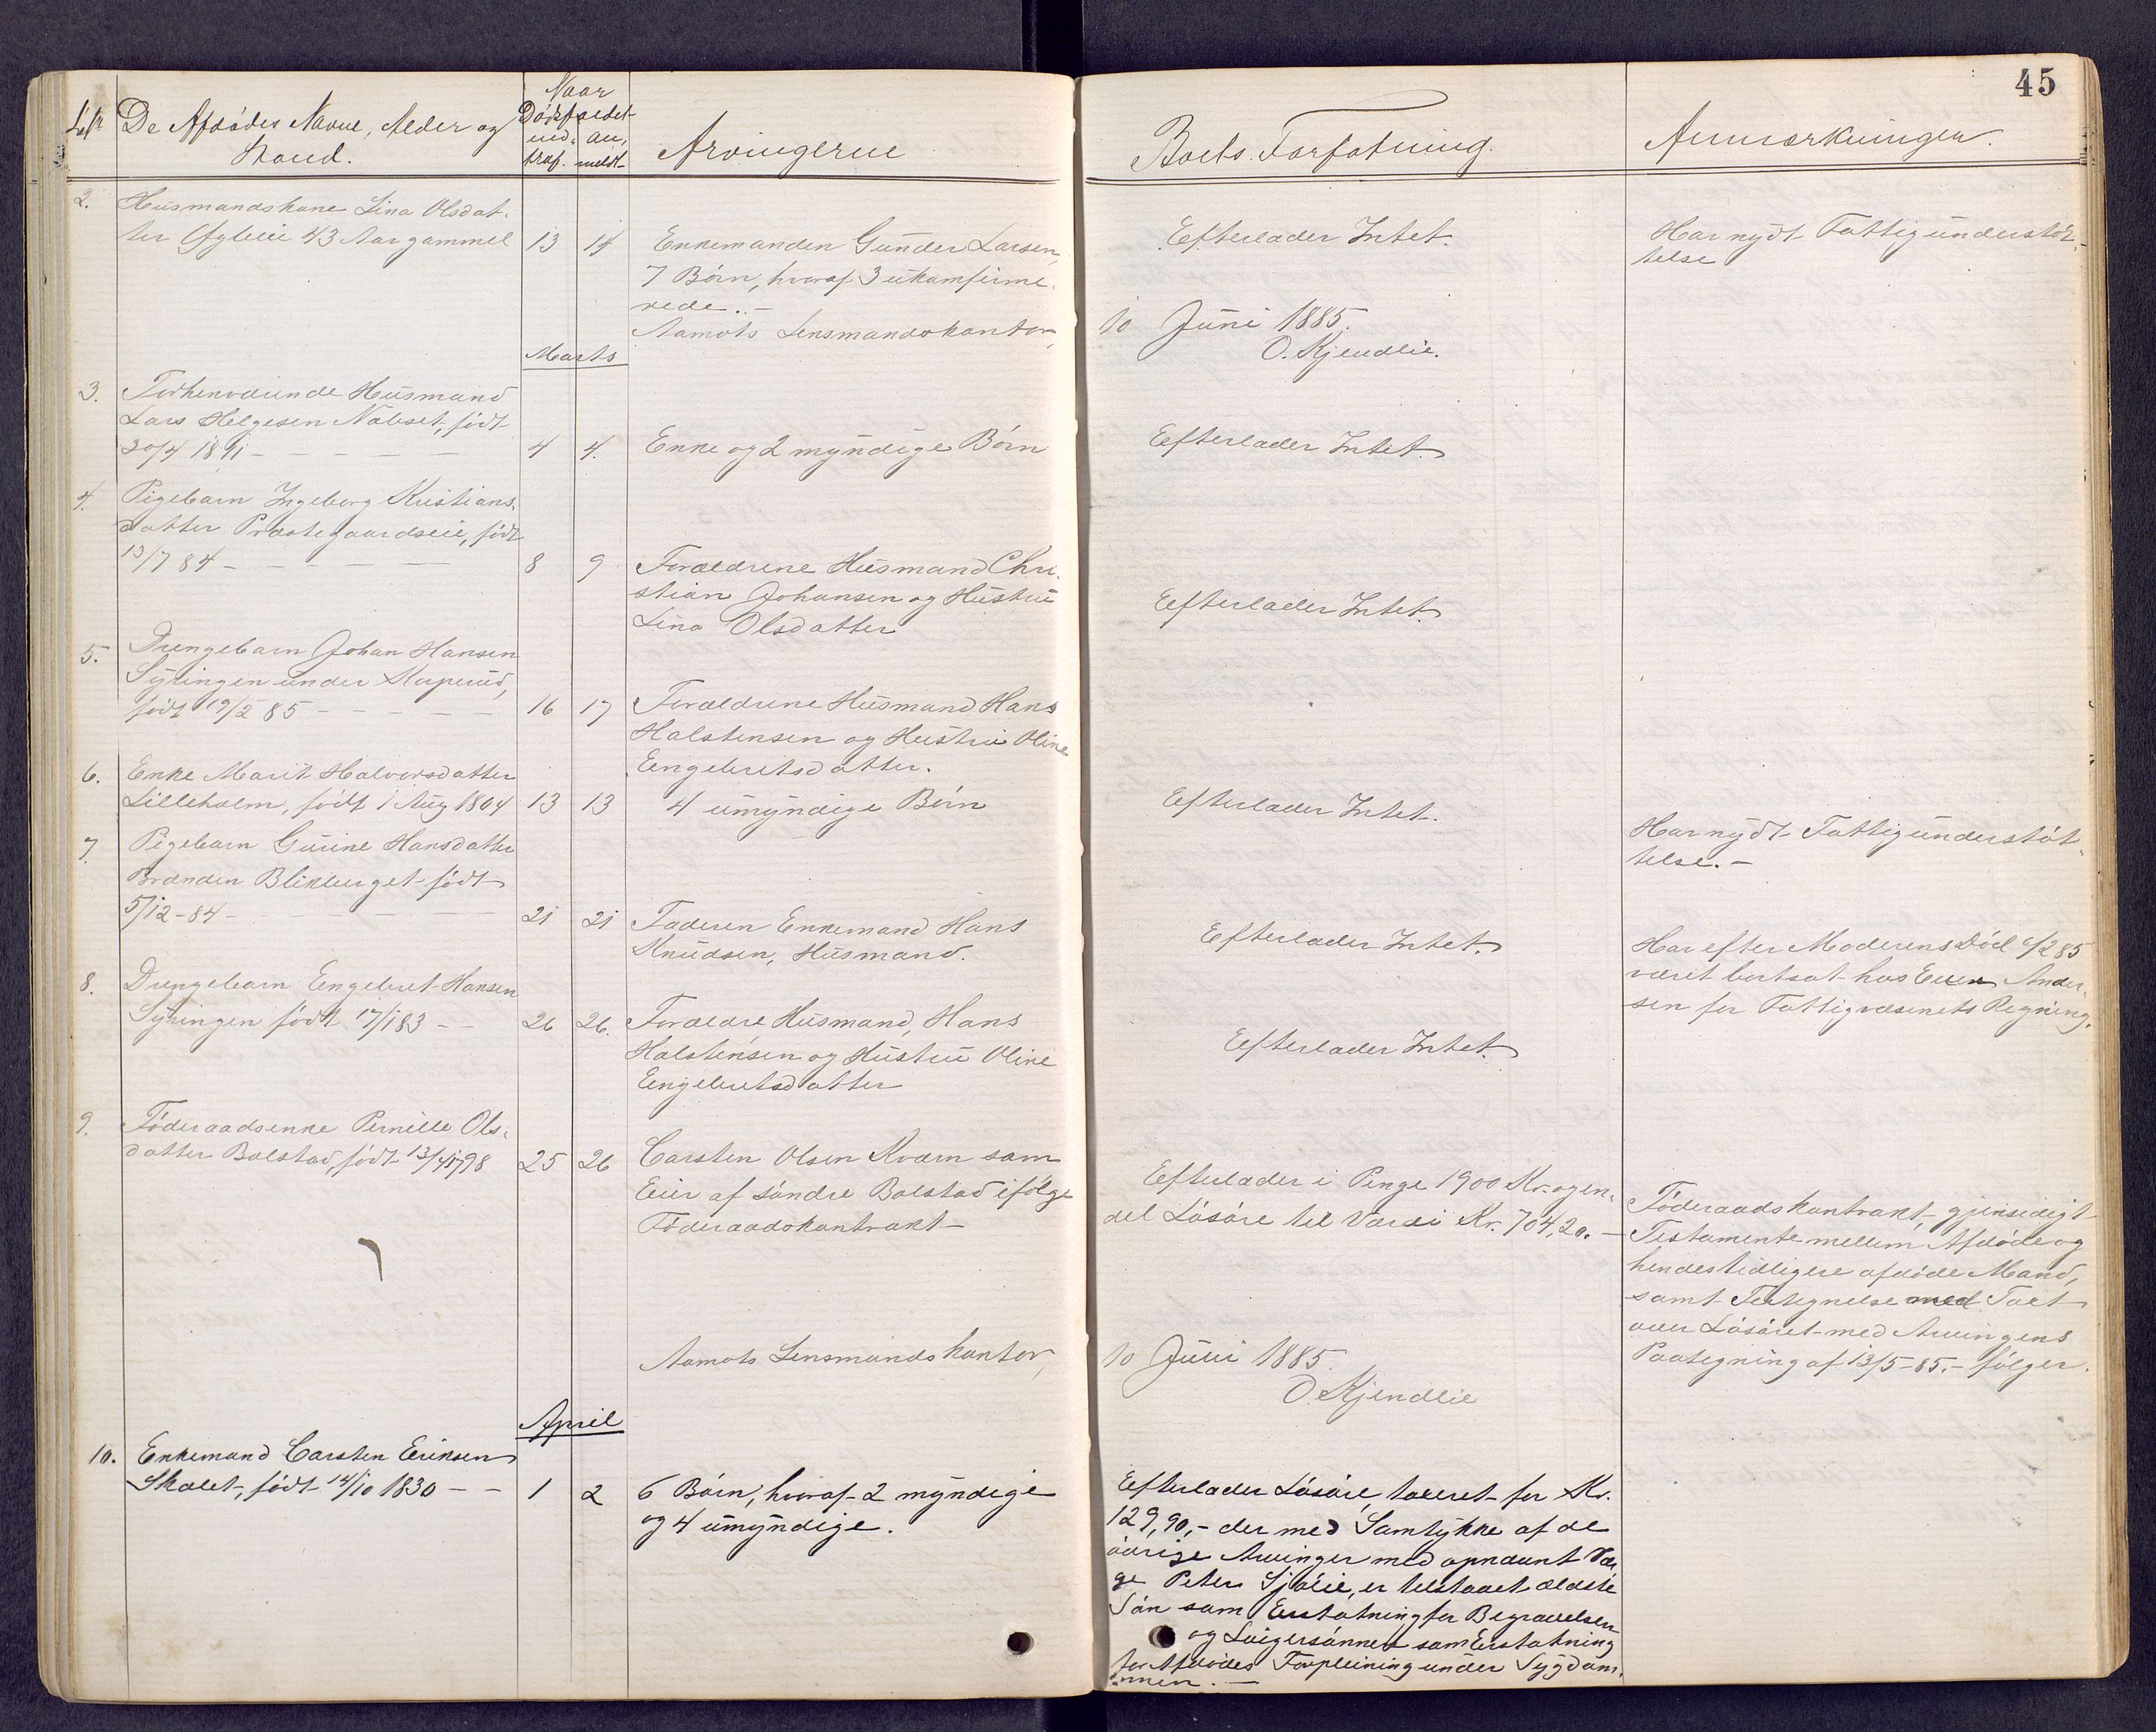 45
De Afdødes Navne, Alder og
Stand.
Naar
Dødsfaldet
ind- an-
traf. meldt
Arvingerne
Boets Forfatning.
Anmærkninger.
2. Husmandskone Lina Olsdat-
ter 43 Aar gammel 13 14 Enkemanden Gunder Larsen,
7 Børn, hvoraf 3 ukomfirme-
rede. -
Efterlader Intet.
Har nydt Fattigunderstøt-
telse
Aamots Lensmandskontor, 10 Juni 1885.
O. Kjendlie.
Marts
3. Forhenværende Husmand
Lars Helgesen Nabset, født
30/4 18 - - - - - 4 4. Enke og 2 myndige Børn
Efterlader Intet.
4. Pigebarn Ingeborg Kristians-
datter Præstegaardseie, født
13/7 84 - - - - - 8 9 Forældrene Husmand Chri-
stian Johansen og Hustru
Lina Olsdatter
Efterlader Intet.
5. Drengebarn Johan Hansen
Syringen under Skaperud,
født 19/2 85 - - - - - 16 17 Forældrene Husmand Hans
Halstensen og Hustru Oline
Engebretsdatter.
6. Enke Marit Halvorsdatter
Lilleholm, født 1 Aug 1804 13 13 4 umyndige Børn
Efterlader Intet.
Har nydt Fattigunderstøt-
telse. -
7. Pigebarn Gurine Hansdatter
Brænden Blikberget født
5/12 - 84 - - - - 21 21 Faderen Enkemand Hans
Knudsen, Husmand.
Efterlader Intet.
Har efter Moderens Død /2 85
været bortsat hos Even Ander-
sen for Fattigvæsenets Regning.
8. Drengebarn Engebret Hansen
Syringen født 17/1 83 - - 26 26. Forældre Husmand, Hans
Halstensen og Hustru Oline
Engebretsdatter
Efterlader Intet.
9. Føderaadsenke Pernille Ols-
datter Bolstad, født 13/4 1798 25 26 Carsten Olsen Kværn som
Eier af søndre Bolstad ifølge
Føderaadskontrakt
Efterlader i Penge 1900 Kr. og en
del Løsøre til Værdi Kr. 704,20. -
Føderaadskontrakt, gjensidigt
Testamente mellem Afdøde og
hendes tidligere afdøde Mand,
samt Fortegnelse med Taxt
over Løsøret med Arvingens
Paategning af 13/5 - 85. - følger.
Aamots Lensmandskontor, 10 Juni 1885.
O. Kjendlie
April
10. Enkemand Carsten Eriksen
Skolet, født 14/10 1830 - - 1 2 6 Børn, hvoraf 2 myndige
og 4 umyndige.
Efterlader Løsøre, taxeret for Kr.
129,90,- der med Samtykke af de
øvrige Arvinger med opnævnt Vær-
ge Peter Sjølie, er tilstaaet ældste
Søn som Erstatning for Begravelsen
og Svigersønnen som Erstatning
for Afdødes Forpleining under Sygdom-
men. -